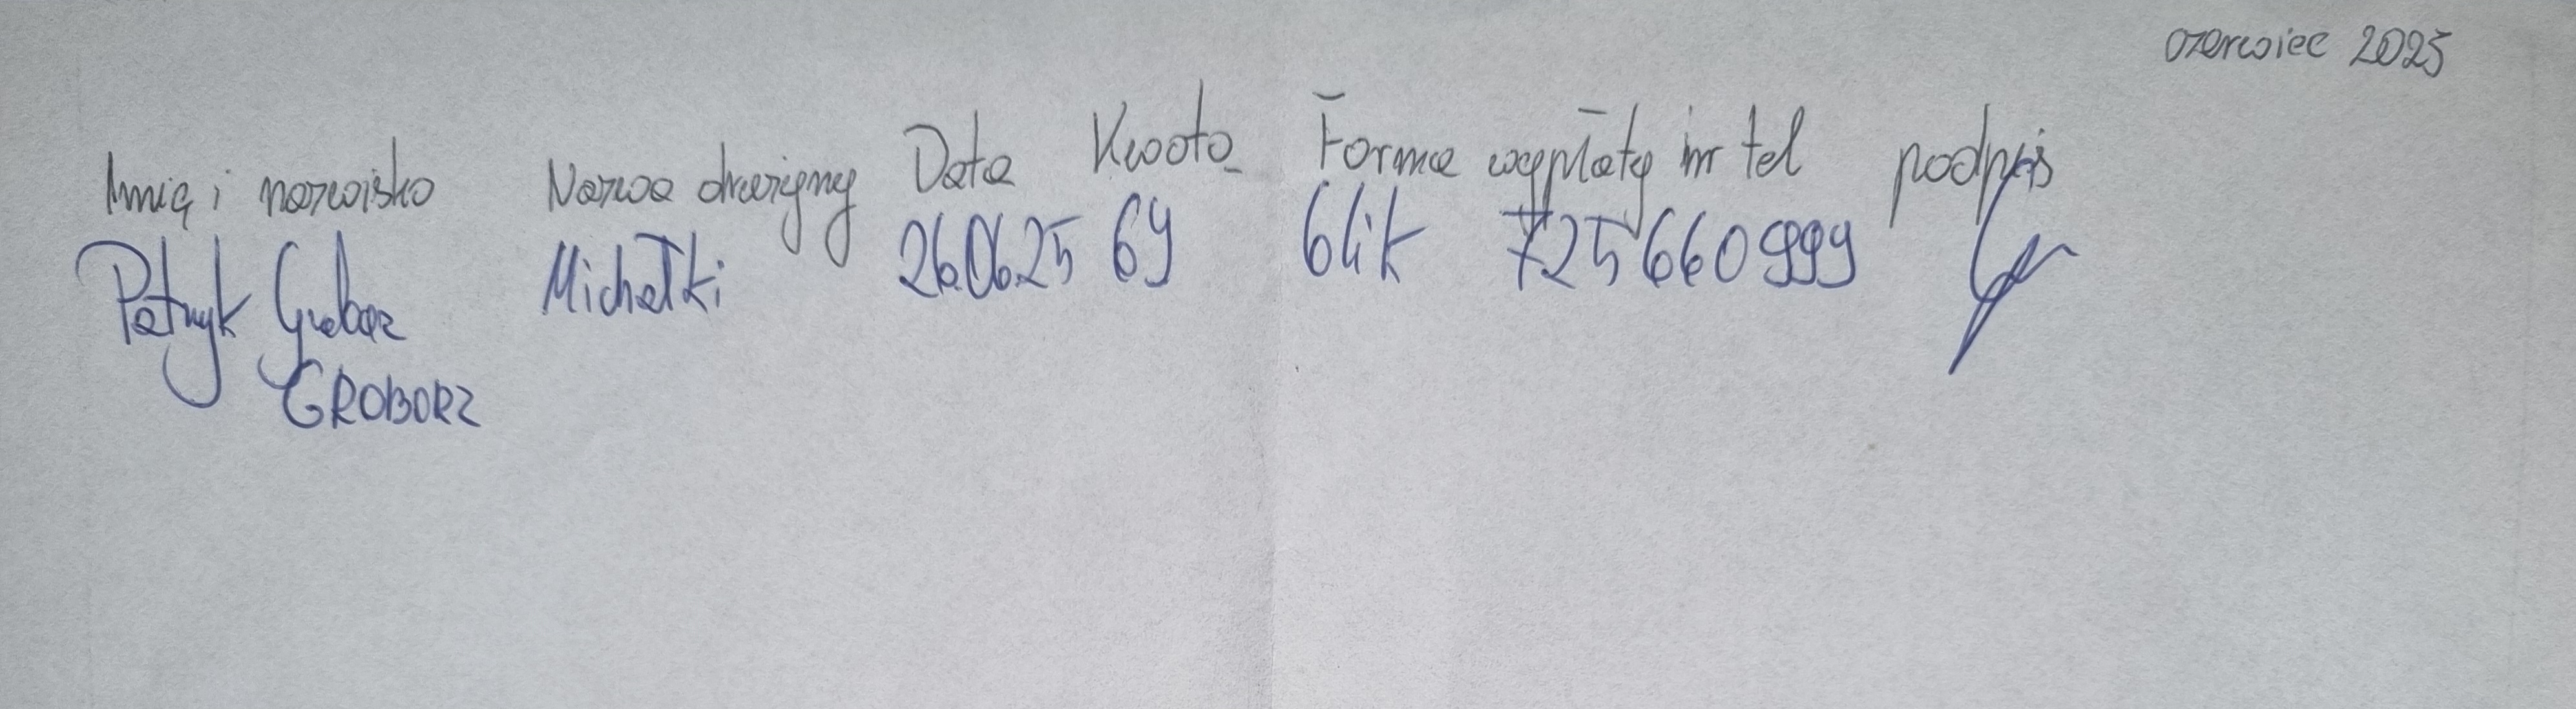 czerwiec 2025
Imię i nazwisko Nazwa drużyny Data Kwota Forma wypłaty nr tel podpis
Patryk Michałki 26.06.25 69 blik 725 660 999
GROBORZ